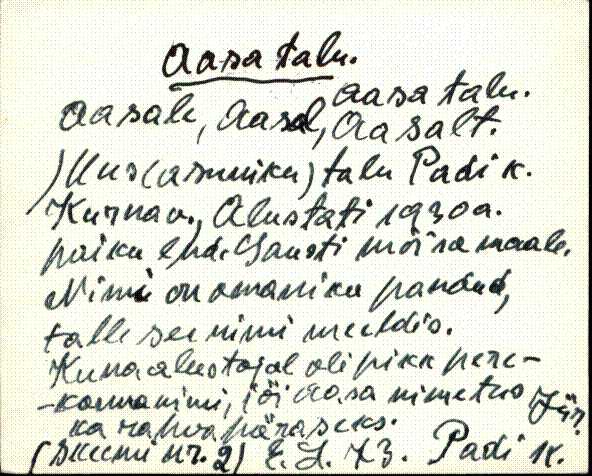 Aasa talu.
aasa talu.
Aasale, Aasal, Aasalt.
) Uus (asuniku) talu Padi k.
Kurna v., Alustati 1930 a.
paiku end. Sausti mõisa maale.
Nimi on omaniku pandud,
talle see nimi meeldis.
Kuna alustajal oli pikk pere-
-konnanimi, jäi Aasa nimetus Jür.
ka rahvapäraseks.
(skeemi nr. 2) E. S. 73. Padi k.